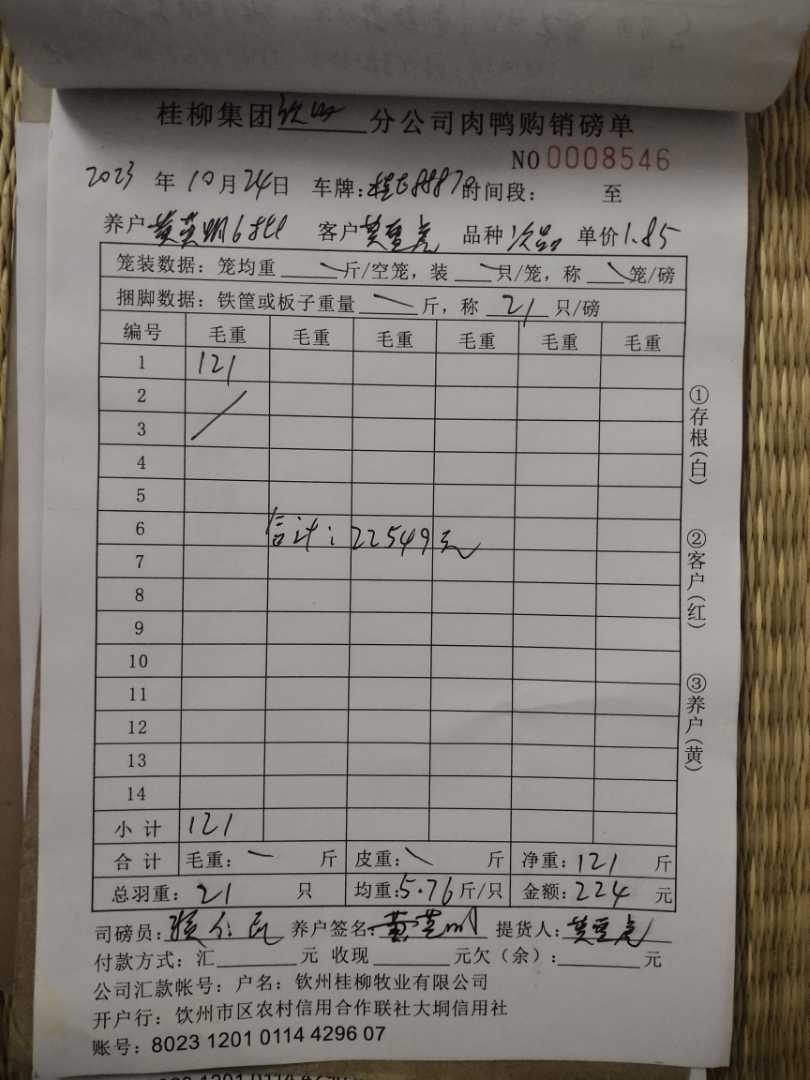 桂柳集团钦州分公司肉鸭购销磅单
NO 0008546
2023 年 10 月 24 日 车牌: 时间段: 至
养户 黄英明6批 客户 黄重虎 品种 次品 单价 1.85
笼装数据:笼均重 斤/空笼,装 只/笼,称 笼/磅
捆脚数据:铁筐或板子重量 斤,称 21 只/磅
编号 毛重 毛重 毛重 毛重 毛重 毛重
1 121
2
3
4
5
6
合计:22549元
7
8
9
10
11
12
13
14
小计 121
合计 毛重: 斤 皮重: 斤 净重:121 斤
总羽重:21 只 均重:5.76 斤/只 金额:224 元
司磅员: 养户签名: 提货人:黄重虎
付款方式:汇 元 收现 元欠(余): 元
公司汇款帐号:户名:钦州桂柳牧业有限公司
开户行:饮州市区农村信用合作联社大垌信用社
账号:8023 1201 0114 4296 07
①存根(白)
②客户(红)
③养户(黄)